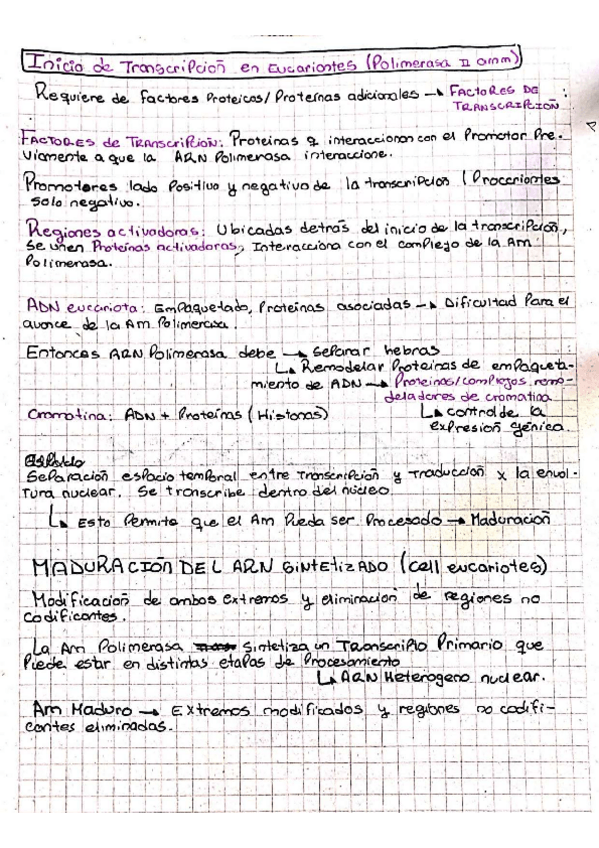 Inicio de Transcripción en Eucariontes (Polimerasa II arnm)
Requiere de factores Proteicos/Proteínas adicionales → FACTORES DE
TRANSCRIPCIÓN
FACTORES de TRANSCRIPCIÓN: Proteínas q interaccionan con el Promotor Pre-
viamente a que la ARN Polimerasa interaccione.
Promotores lado Positivo y negativo de la transcripción (Procariontes
solo negativo.
Regiones activadoras: Ubicadas detrás del inicio de la transcripción,
se unen Proteínas activadoras, Interacciona con el complejo de la Arn
Polimerasa.
ADN eucariota: Empaquetado, Proteínas asociadas → Dificultad Para el
avance de la Arn Polimerasa.
Entonces ARN Polimerasa debe → Separar hebras
↳ Remodelar Proteínas de empaqueta-
miento de ADN → Proteínas/complejos remo-
deladores de cromatina
Cromatina: ADN + Proteínas (Histonas) ↳ control de la
expresión génica.
Separación espacio temporal entre transcripción y traducción x la envol-
tura nuclear. Se transcribe dentro del núcleo
↳ Esto Permite que el Arn Pueda ser Procesado → Maduración
MADURACIÓN DEL ARN SINTETIZADO (cell eucariotes)
Modificación de ambos extremos y eliminación de regiones no
codificantes.
La Arn Polimerasa sintetiza un Transcripto Primario que
Puede estar en distintas etapas de Procesamiento
↳ ARN Heterogeno nuclear.
Arn Maduro → Extremos modificados y regiones no codifi-
cantes eliminadas.